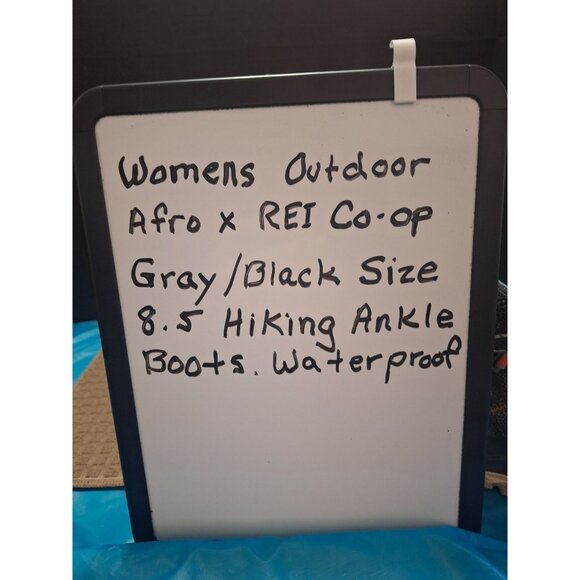 Womens Outdoor
Afro x REI Co-op
Gray/Black Size
8.5 Hiking Ankle
Boots. Waterproof